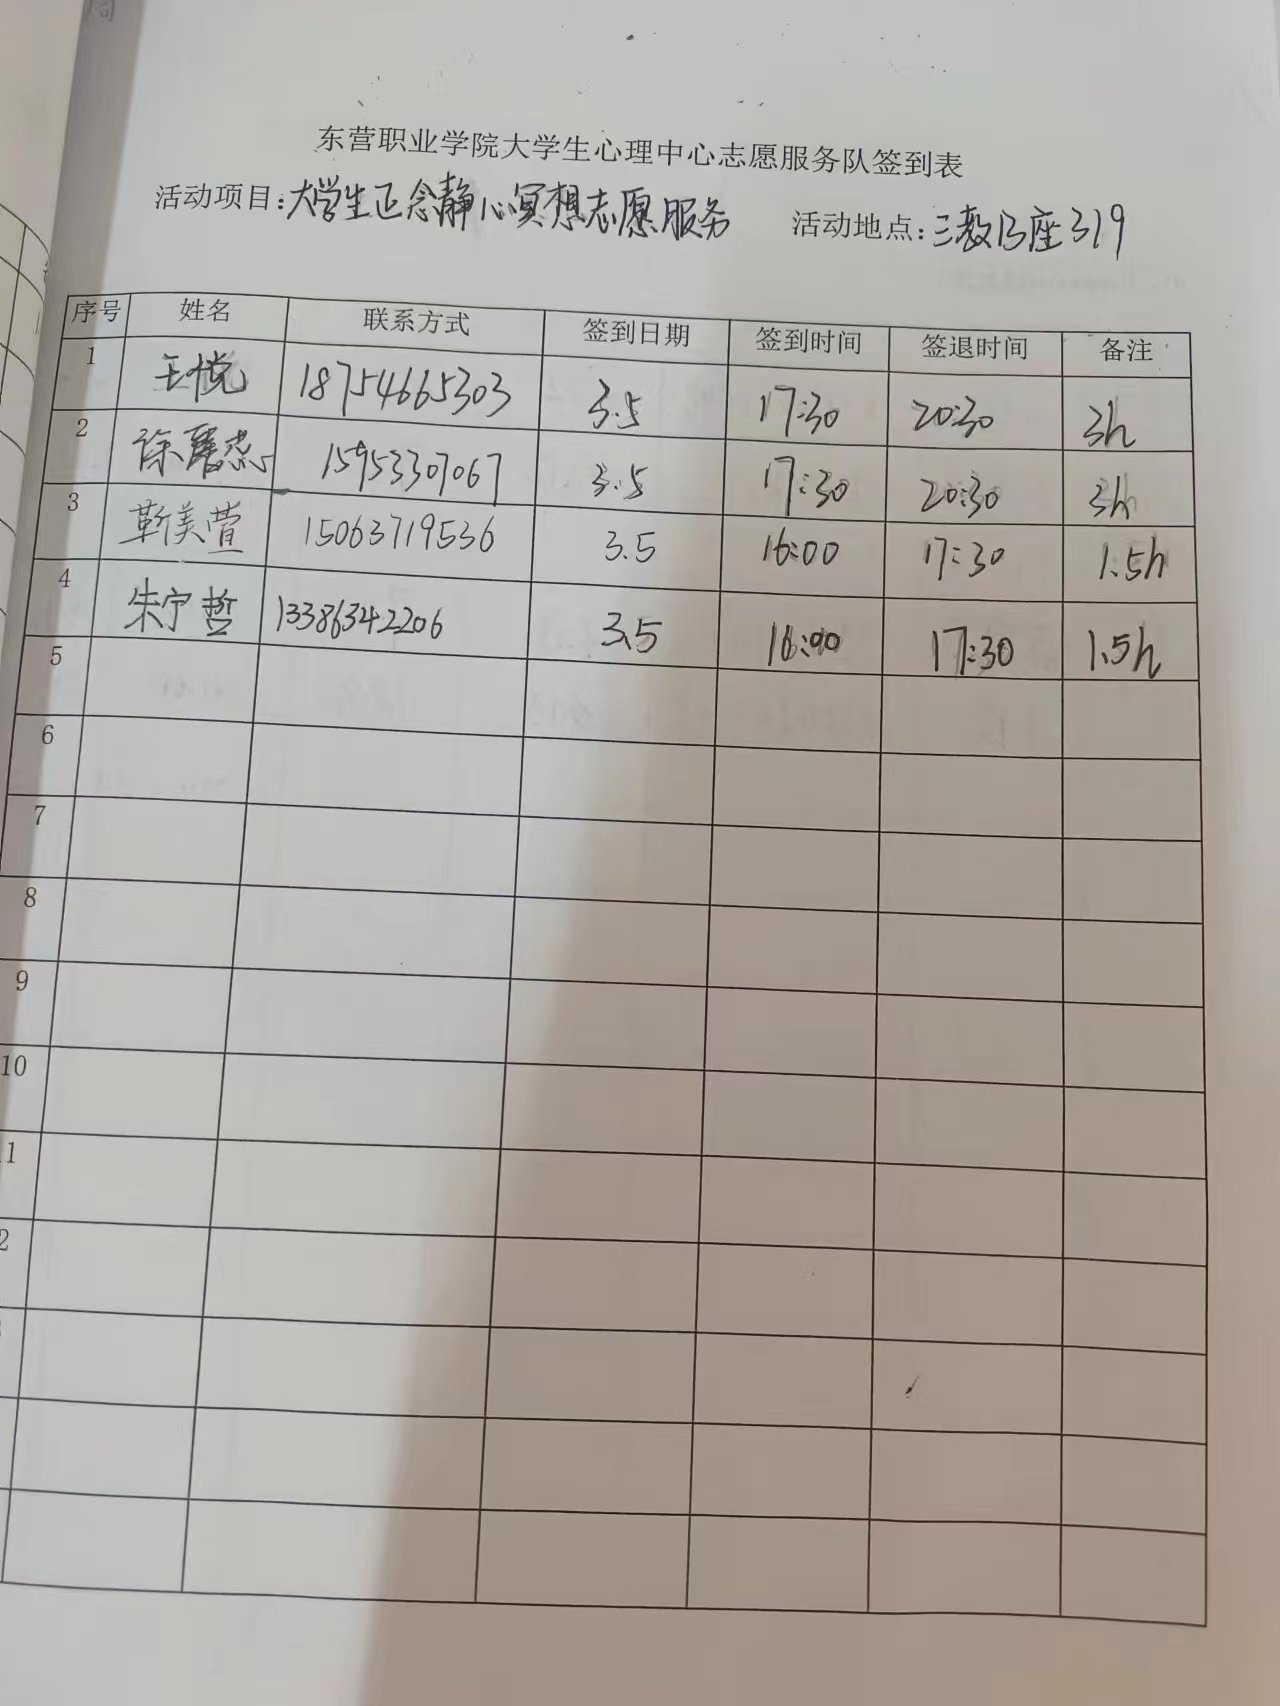 东营职业学院大学生心理中心志愿服务队签到表
活动项目:大学生正念静心冥想志愿服务 活动地点:三教B座319
序号 姓名 联系方式 签到日期 签到时间 签退时间 备注
1 王悦 18754665303 3.5 17:30 20:30 3h
2 15953307067 3.5 17:30 20:30 3h
3 靳美萱 15063719536 3.5 16:00 17:30 1.5h
4 朱宁哲 13386342206 3.5 16:00 17:30 1.5h
5
6
7
8
9
10
1
2